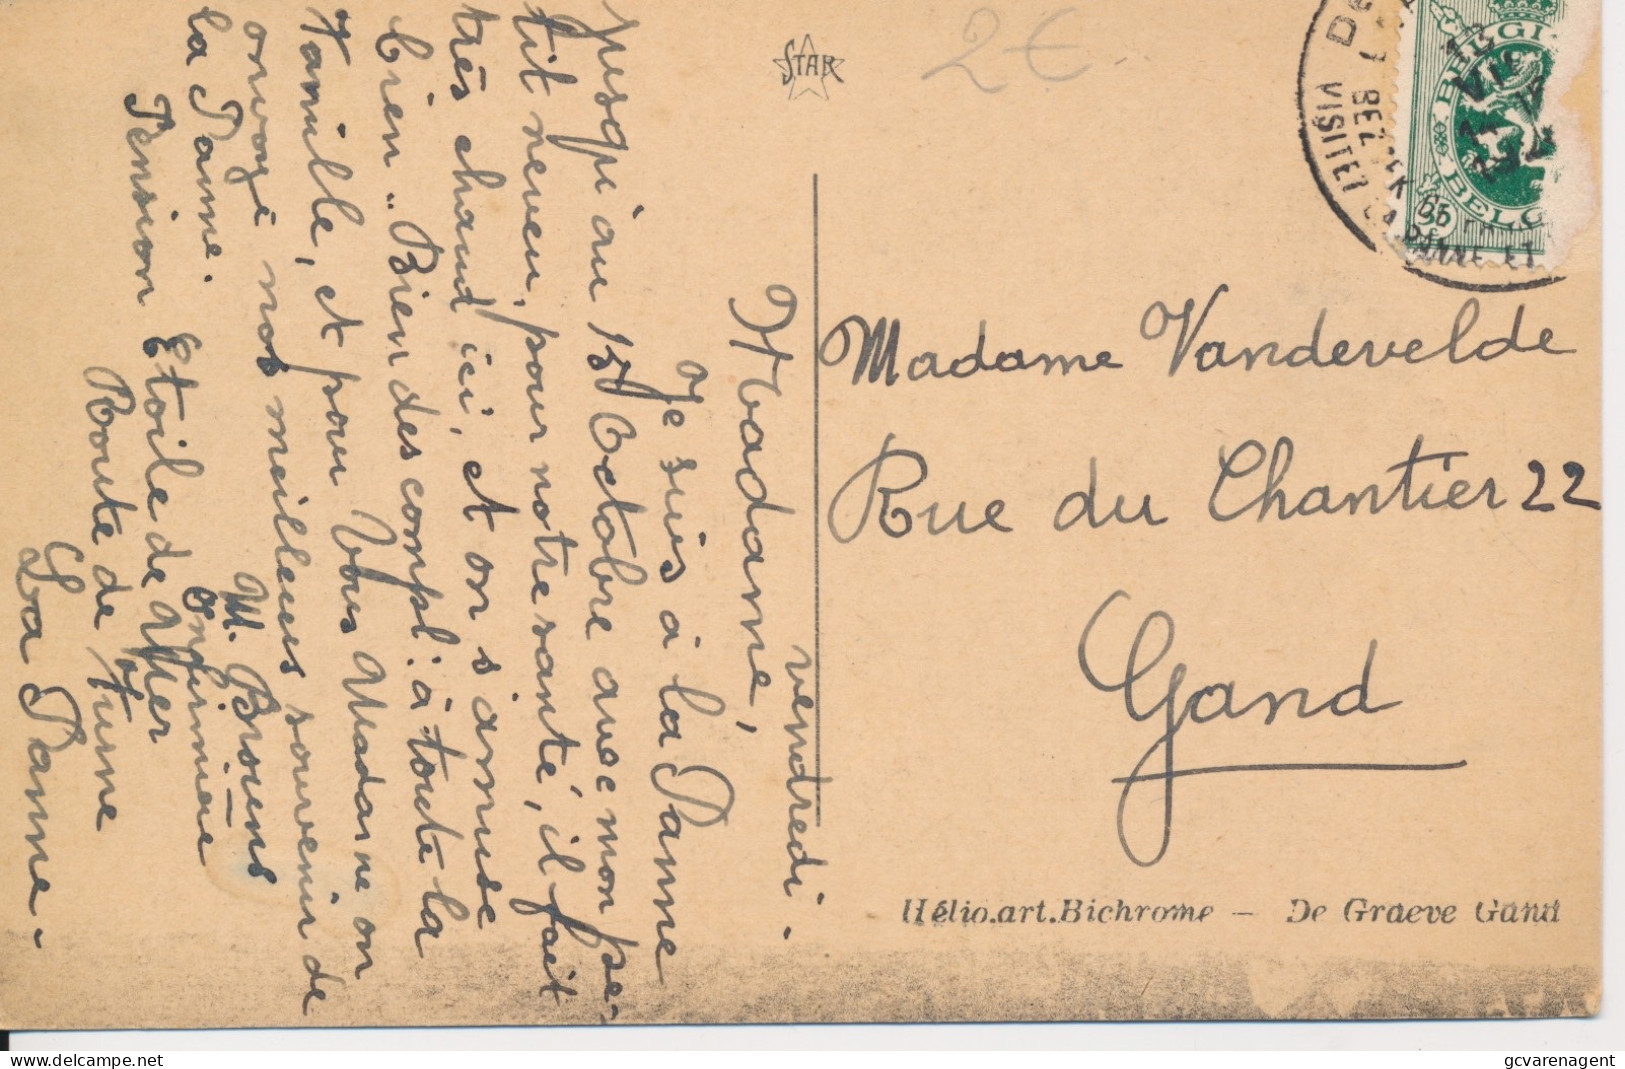 vendredi.
Madame,
Je suis à la Panne
jusqu'au 15 Octobre avec mon pe-
tit neveu, pour notre santé, il fait
très chaud ici, et on s'amuse
bien „ Bien des compl: à toute la
Famille, et pour Vous Madame on
envoye nos meilleurs souvenir de
la Panne.
M. Bruns
Infirmière
Pension Etoile de Mer
Route de Furne
La Panne.
STAR
2€
Madame Vandevelde
Rue du Chantier 22
Gand
Hélio.art.Bichrome – De Graeve Gand
BELGI
BELG
35
VISITEZ LA PANNE ET
gcvarenagent